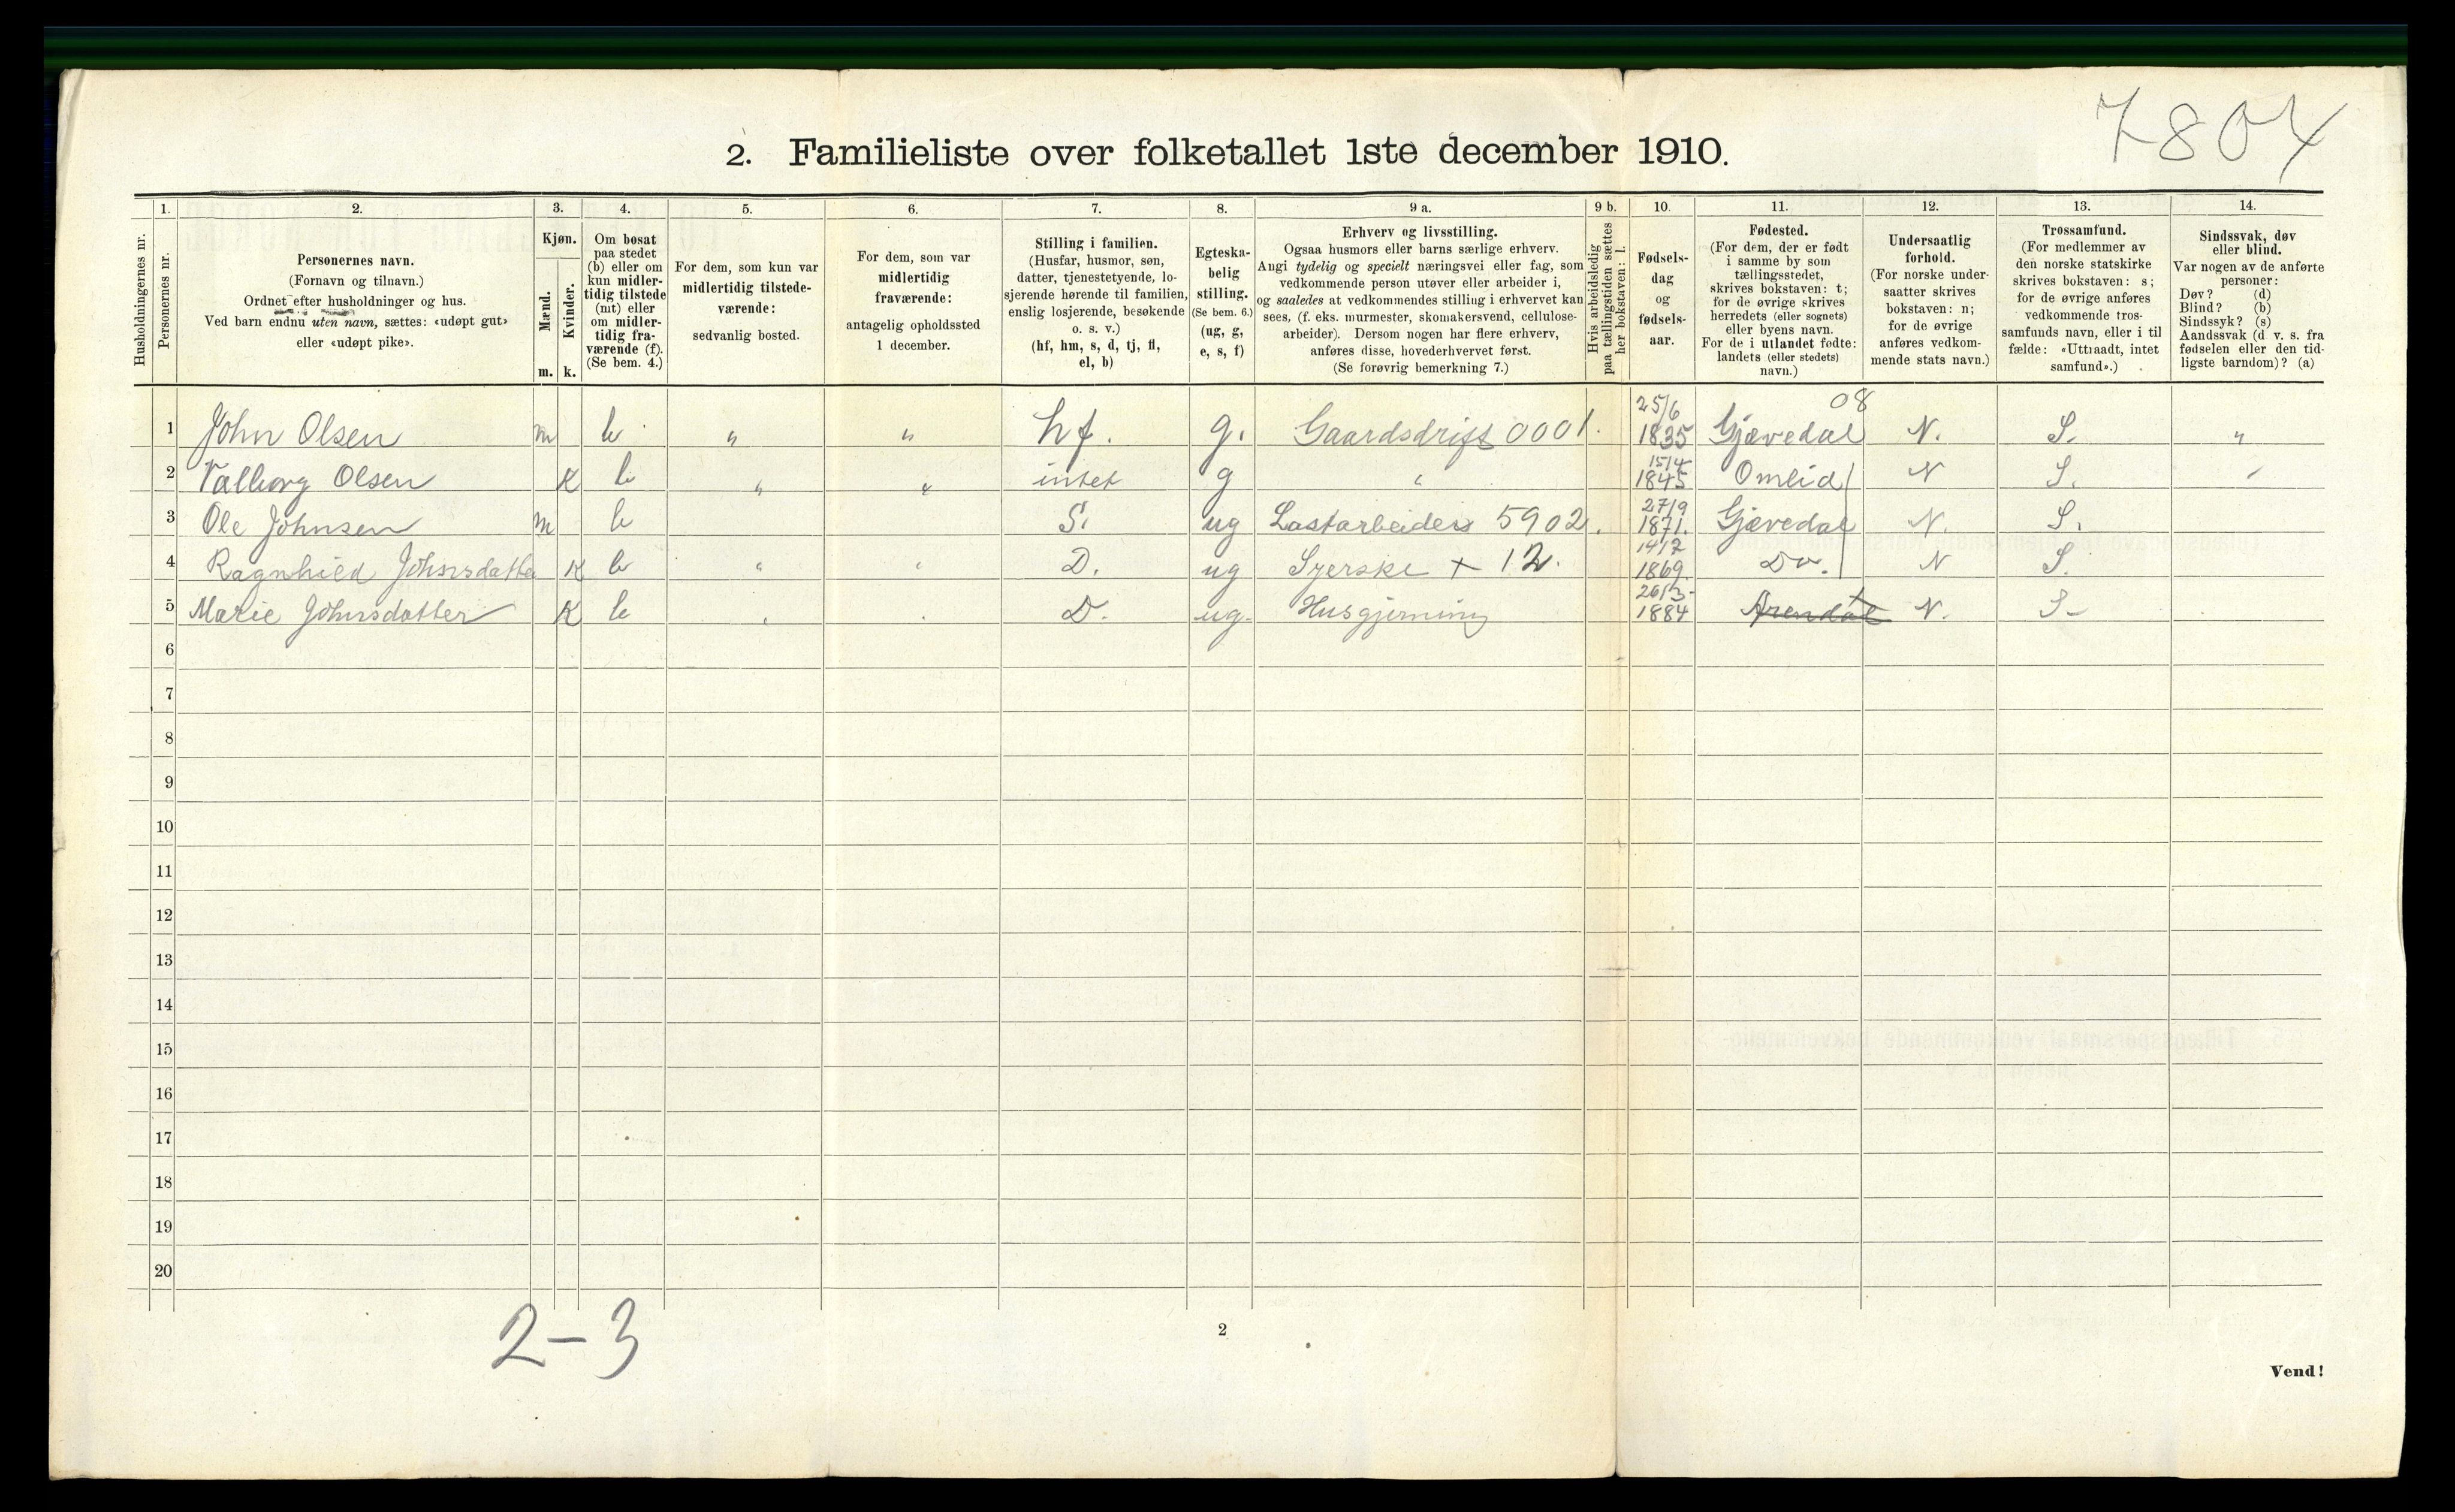 7804
2. Familieliste over folketallet 1ste december 1910.
1. 2. 3. 4. 5. 6. 7. 8. 9 a. 9 b. 10. 11. 12. 13. 14.
Husholdningernes nr.
Personernes nr.
Personernes navn.
(Fornavn og tilnavn.)
Ordnet efter husholdninger og hus.
Ved barn endnu uten navn, sættes: «udøpt gut»
eller «udøpt pike».
Kjøn.
Mænd.
Kvinder.
m. k.
Om bosat
paa stedet
(b) eller om
kun midler-
tidig tilstede
(mt) eller
om midler-
tidig fra-
værende (f).
(Se bem. 4.)
For dem, som kun var
midlertidig tilstede-
værende:
sedvanlig bosted.
For dem, som var
midlertidig
fraværende:
antagelig opholdssted
1 december.
Stilling i familien.
(Husfar, husmor, søn,
datter, tjenestetyende, lo-
sjerende hørende til familien,
enslig losjerende, besøkende
o. s. v.)
(hf, hm, s, d, tj, fl,
el, b)
Egteska-
belig
stilling.
(Se bem. 6.)
(ug, g,
e, s, f)
Erhverv og livsstilling.
Ogsaa husmors eller barns særlige erhverv.
Angi tydelig og specielt næringsvei eller fag, som
vedkommende person utøver eller arbeider i,
og saaledes at vedkommendes stilling i erhvervet kan
sees, (f. eks. murmester, skomakersvend, cellulose-
arbeider). Dersom nogen har flere erhverv,
anføres disse, hovederhvervet først.
(Se forøvrig bemerkning 7.)
Hvis arbeidsledig
paa tællingstiden sættes
her bokstaven: l.
Fødsels-
dag
og
fødsels-
aar.
Fødested.
(For dem, der er født
i samme by som
tællingsstedet,
skrives bokstaven: t;
for de øvrige skrives
herredets (eller sognets)
eller byens navn.
For de i utlandet fødte:
landets (eller stedets)
navn.)
Undersaatlig
forhold.
(For norske under-
saatter skrives
bokstaven: n;
for de øvrige
anføres vedkom-
mende stats navn.)
Trossamfund.
(For medlemmer av
den norske statskirke
skrives bokstaven: s;
for de øvrige anføres
vedkommende tros-
samfunds navn, eller i til
fælde: «Uttraadt, intet
samfund».)
Sindssvak, døv
eller blind.
Var nogen av de anførte
personer:
Døv? (d)
Blind? (b)
Sindssyk? (s)
Aandssvak (d v. s. fra
fødselen eller den tid-
ligste barndom)? (a)
1 John Olsen m b " " hf. g. Gaardsdrift 0001. 25/6 1835 Gjævedal 08 N. S. "
2 Valborg Olsen K b " " intet g " 15/4 1845 Omlid N S.
3 Ole Johnsen m b S. ug Lastarbeider 5902. 27/9 1871. Gjævedal N. S.
4 Ragnhild Johnsdatter K b " " D. ug Syerske + 12. 14/2 1869. Do. N S.
5 Marie Johnsdatter K b D. ug. Husgjerning 26/3- 1884 Arendal t N. S-
6
7
8
9
10
11
12
13
14
15
16
17
18
19
20
2-3
2
Vend!